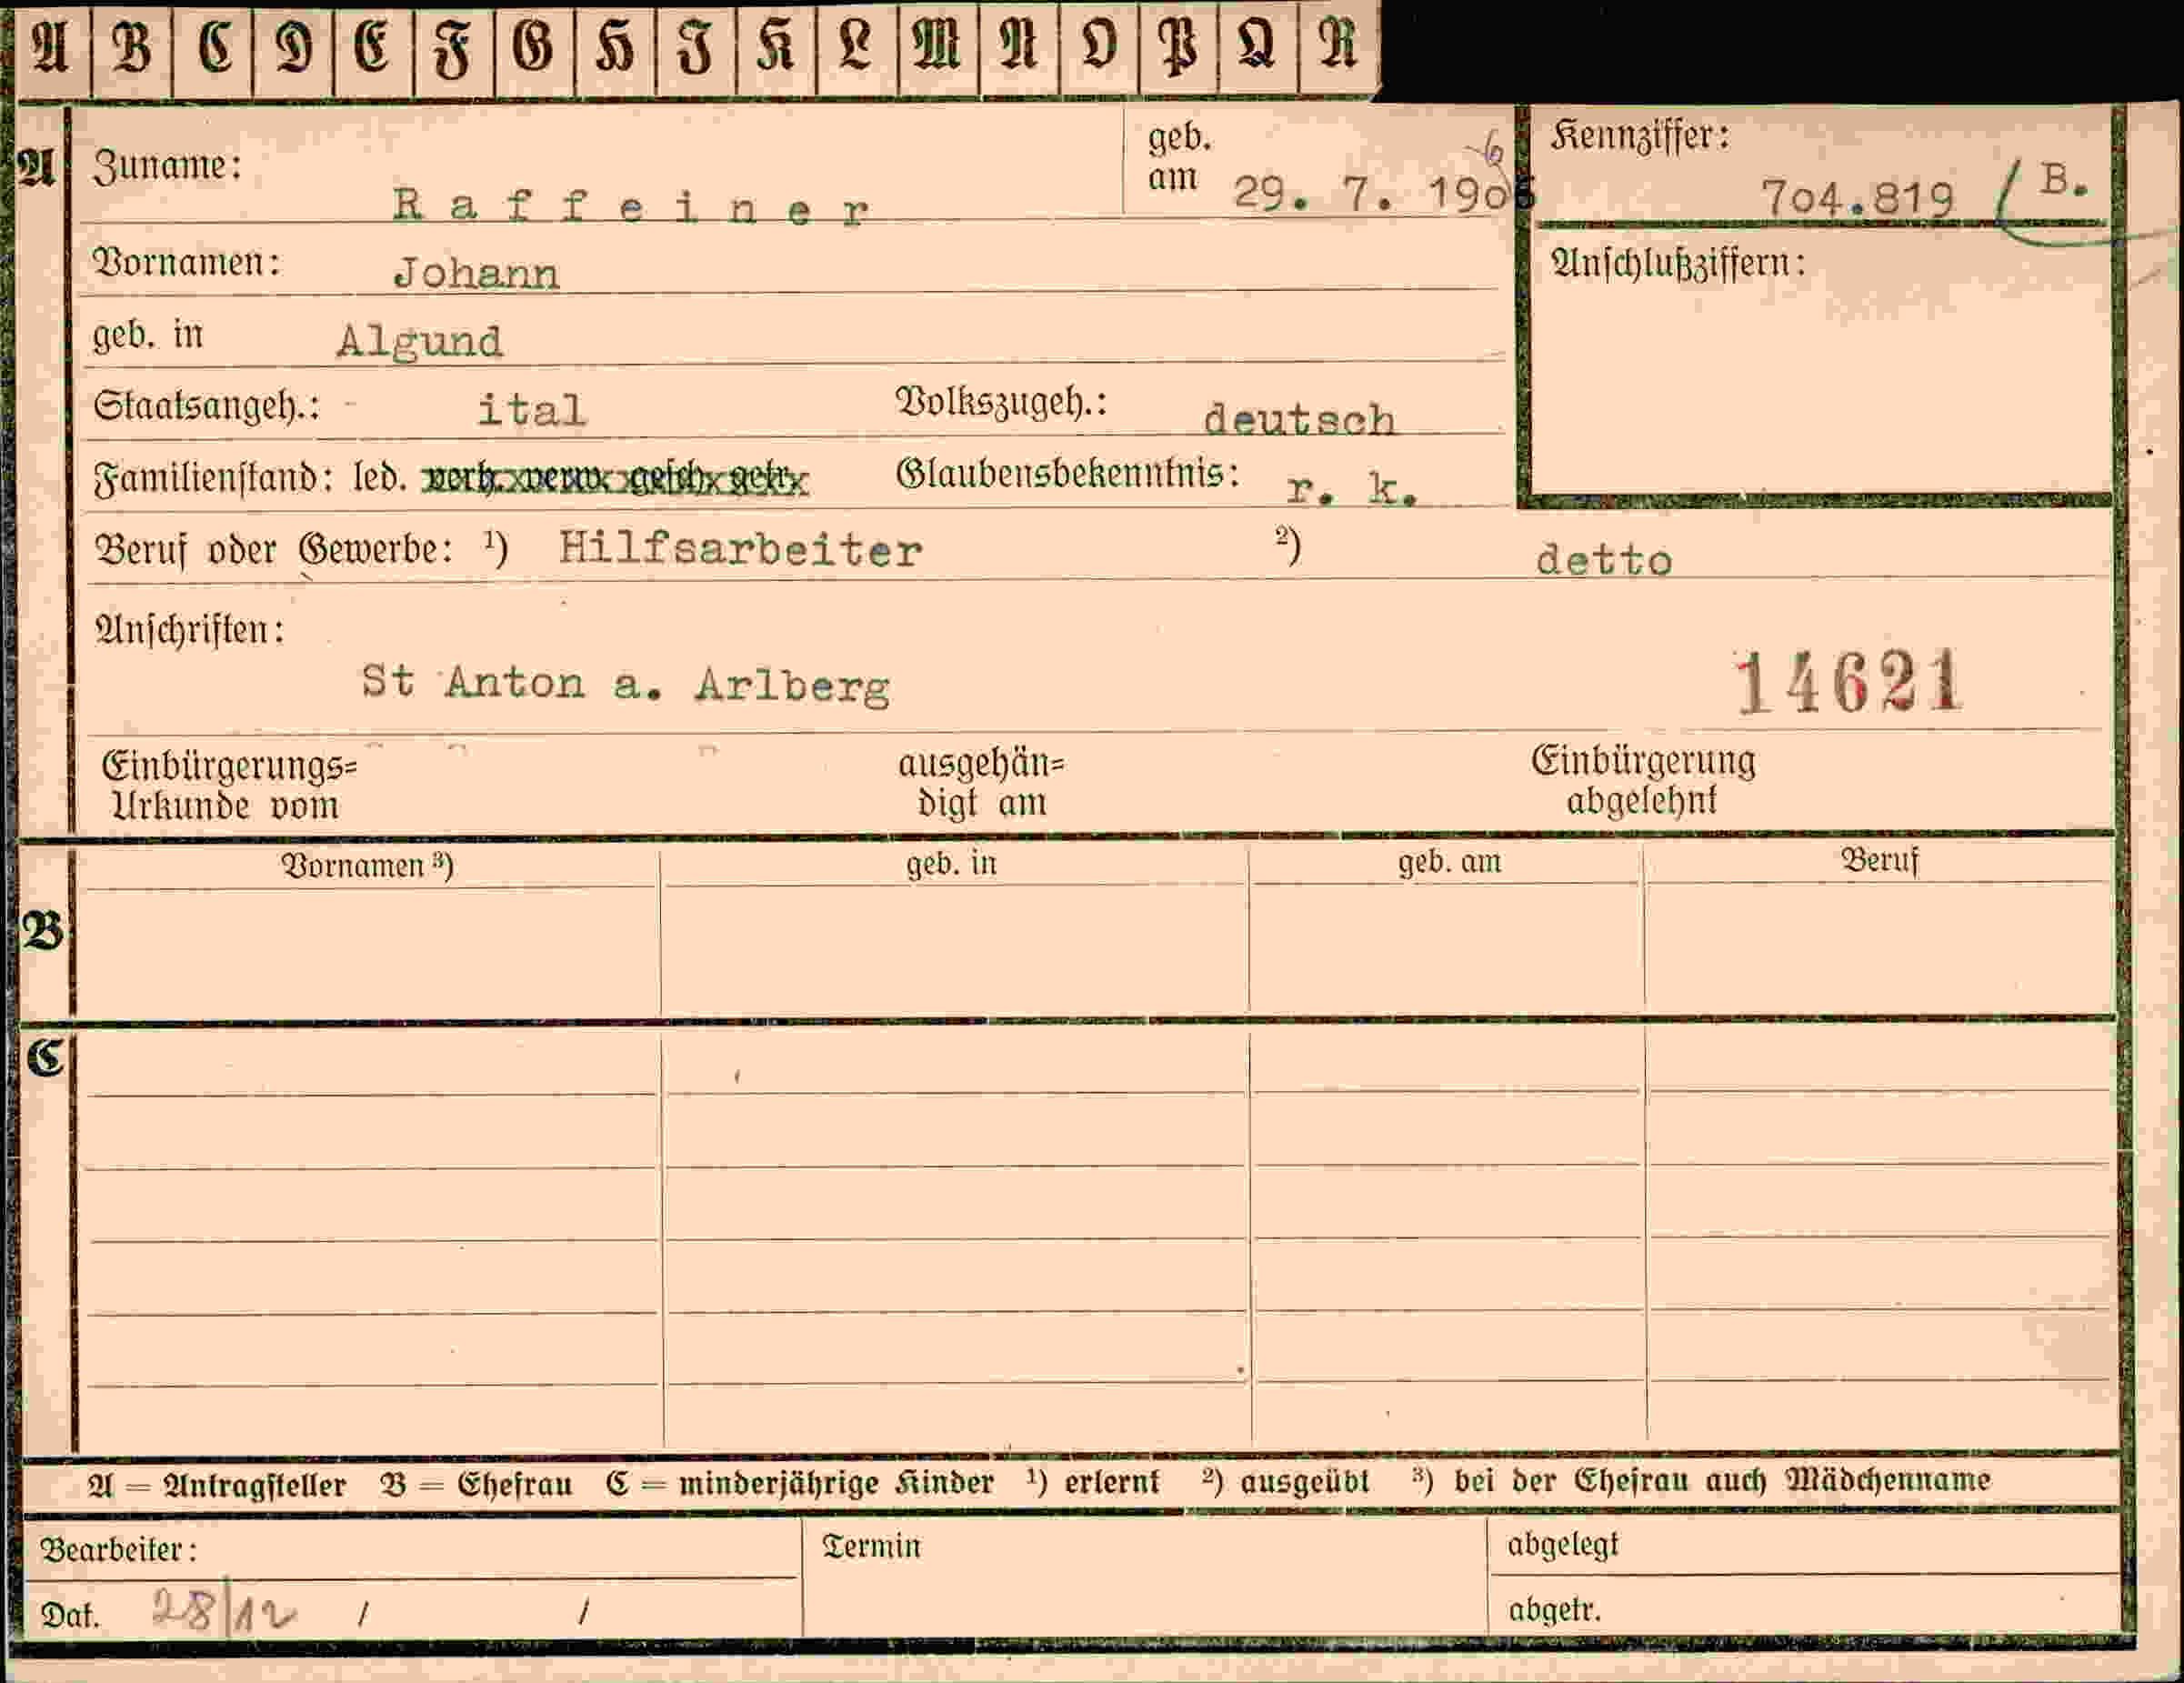 A B C D E F G H J K L M N O P Q R
A Zuname: Raffeiner geb. am 29. 7. 1906 6 Kennziffer: 704.819 / B.
Vornamen: Johann Anschlußziffern:
geb. in Algund
Staatsangeh.: - ital Volkszugeh.: deutsch
Familienstand: led. verh. verw. gesch. getr. Glaubensbekenntnis: r. k.
Beruf oder Gewerbe: ¹) Hilfsarbeiter ²) detto
Anschriften:
St Anton a. Arlberg 14621
Einbürgerungs= ausgehän= Einbürgerung
Urkunde vom digt am abgelehnt
Vornamen ³) geb. in geb. am Beruf
B
C
A = Antragsteller B = Ehefrau C = minderjährige Kinder ¹) erlernt ²) ausgeübt ³) bei der Ehefrau auch Mädchenname
Bearbeiter: Termin abgelegt
Dat. 28/12 / / abgetr.